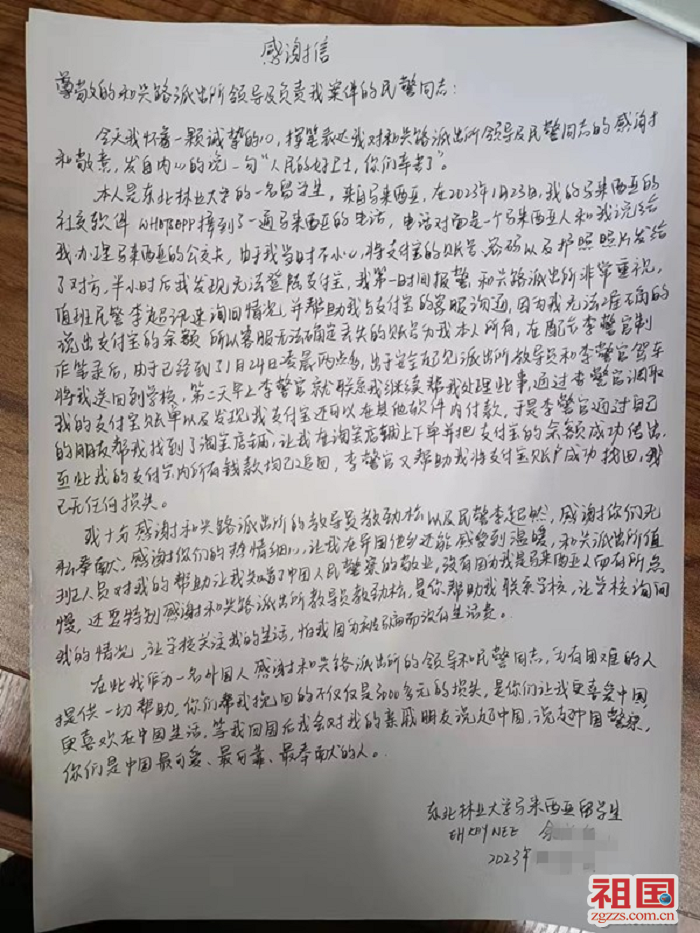 感谢信
尊敬的和兴路派出所领导及负责我案件的民警同志：
今天我怀着一颗诚挚的心，挥笔表达我对和兴路派出所领导及民警同志的感谢
和敬意，发自内心的说一句“人民的好卫士，你们辛苦了”。
本人是东北林业大学的一名留学生，来自马来西亚，在2023年1月23日，我的马来西亚的
社交软件WHATSAPP接到了一通马来西亚的电话，电话对面是一个马来西亚人和我说给
我办理马来西亚的公交卡，由于我当时不小心，将支付宝的账号、密码以及护照照片发给
了对方，半小时后我发现无法登陆支付宝，我第一时间报警，和兴路派出所非常重视，
值班民警李超迅速询问情况，并帮助我与支付宝的客服沟通，因为我无法准确的
说出支付宝的余额，所以客服无法确定丢失的账号为我本人所有，在配合李警官制
作笔录后，由于已经到了1月24日凌晨两点多，出于安全考虑派出所教导员和李警官驾车
将我送回到学校，第二天早上李警官就联系我继续帮我处理此事，通过李警官调取
我的支付宝账单以及发现我支付宝还可以在其他软件内付款，于是李警官通过自己
的朋友帮我找到了淘宝店铺，让我在淘宝店铺上下单并把支付宝的余额成功传出，
至此我的支付宝内所有钱款均已追回，李警官又帮助我将支付宝账户成功找回，我
已无任何损失。
我十分感谢和兴路派出所的教导员敖劲松以及民警李超然，感谢你们无
私奉献，感谢你们的热情细心，让我在异国他乡还能感受到温暖，和兴派出所值
班人员对我的帮助让我知道了中国人民警察的敬业，没有因为我是马来西亚人而有所怠
慢，还要特别感谢和兴路派出所教导员敖劲松，是你帮助我联系学校，让学校询问
我的情况，让学校关注我的生活，怕我因为被骗而没有生活费。
在此我作为一名外国人感谢和兴路派出所的领导和民警同志，为有困难的人
提供一切帮助，你们帮我挽回的不仅仅是3000多元的损失，是你们让我更喜爱中国，
更喜欢在中国生活，等我回国后我会对我的亲戚朋友说好中国，说好中国警察，
你们是中国最可爱、最可靠、最奉献的人。
东北林业大学马来西亚留学生
2023年
祖国
zgzzs.com.cn